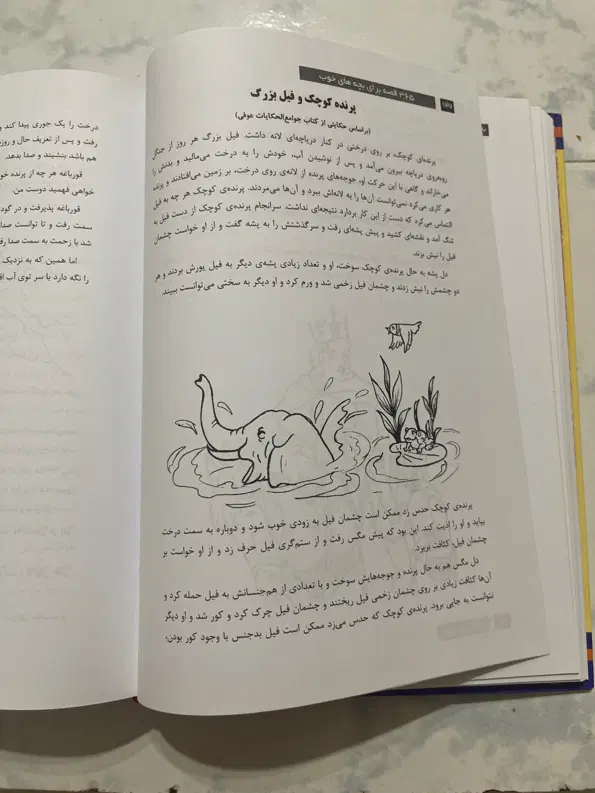 ۳۶۵ قصه برای بچه های خوب
پرنده کوچک و فیل بزرگ
(براساس حکایتی از کتاب جوامع‌الحکایات عوفی)
پرنده‌ای کوچک، بر روی درختی در کنار دریاچه‌ای لانه داشت. فیل بزرگ هر روز از جنگل
روبه‌روی دریاچه بیرون می‌آمد و پس از نوشیدن آب، خودش را به درخت می‌مالید و بدنش را
می‌خاراند و گاهی با این حرکت او، جوجه‌های پرنده از لانه‌ی روی درخت، بر زمین می‌افتادند و پرنده
هر کاری می‌کرد نمی‌توانست آن‌ها را به لانه‌اش ببرد و آن‌ها می‌مردند. پرنده‌ی کوچک هر چه به فیل
التماس می‌کرد که دست از این کار بردارد نتیجه‌ای نداشت. سرانجام پرنده‌ی کوچک از دست فیل به
تنگ آمد و نقشه‌ای کشید و پیش پشه‌ای رفت و سرگذشتش را به پشه گفت و از او خواست چشمان
فیل را نیش بزند.
دل پشه به حال پرنده‌ی کوچک سوخت، او و تعداد زیادی پشه‌ی دیگر به فیل یورش بردند و هر
دو چشمش را نیش زدند و چشمان فیل زخمی شد و ورم کرد و او دیگر به سختی می‌توانست ببیند.
پرنده‌ی کوچک حدس زد ممکن است چشمان فیل به زودی خوب شود و دوباره به سمت درخت
بیاید و او را اذیت کند. این بود که پیش مگس رفت و از ستم‌گری فیل حرف زد و از او خواست بر
چشمان فیل، کثافت بریزد.
دل مگس هم به حال پرنده و جوجه‌هایش سوخت و با تعدادی از هم‌جنسانش به فیل حمله کرد و
آن‌ها کثافت زیادی بر روی چشمان زخمی فیل ریختند و چشمان فیل چرک کرد و کور شد و او دیگر
نتوانست به جایی برود. پرنده‌ی کوچک که حدس می‌زد ممکن است فیل بدجنس با وجود کور بودن؛
درخت را یک جوری پیدا کند و
رفت و پس از تعریف حال و روز
هم باشد بنشیند و صدا بدهد.
قورباغه هر چه از پرنده
خواهی فهمید دوست من.
قورباغه پذیرفت و در گود
سمت رفت و تا توانست صدا
شد با زحمت به سمت صدا
اما همین که به نزدیک
را نگه دارد با سر توی آب